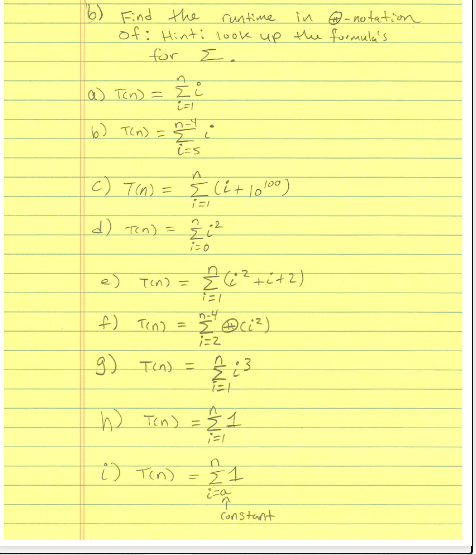 b) Find the runtime in Θ-notation
of: Hint: look up the formula's
for Σ.
a) T(n) = Σ_{i=1}^{n} i
b) T(n) = Σ_{i=5}^{n-4} i
c) T(n) = Σ_{i=1}^{n} (i + 10^{100})
d) T(n) = Σ_{i=0}^{n} i^2
e) T(n) = Σ_{i=1}^{n} (i^2 + i + 2)
f) T(n) = Σ_{i=2}^{n-4} Θ(i^2)
g) T(n) = Σ_{i=1}^{n} i^3
h) T(n) = Σ_{i=1}^{n} 1
i) T(n) = Σ_{i=a}^{n} 1
↑
constant